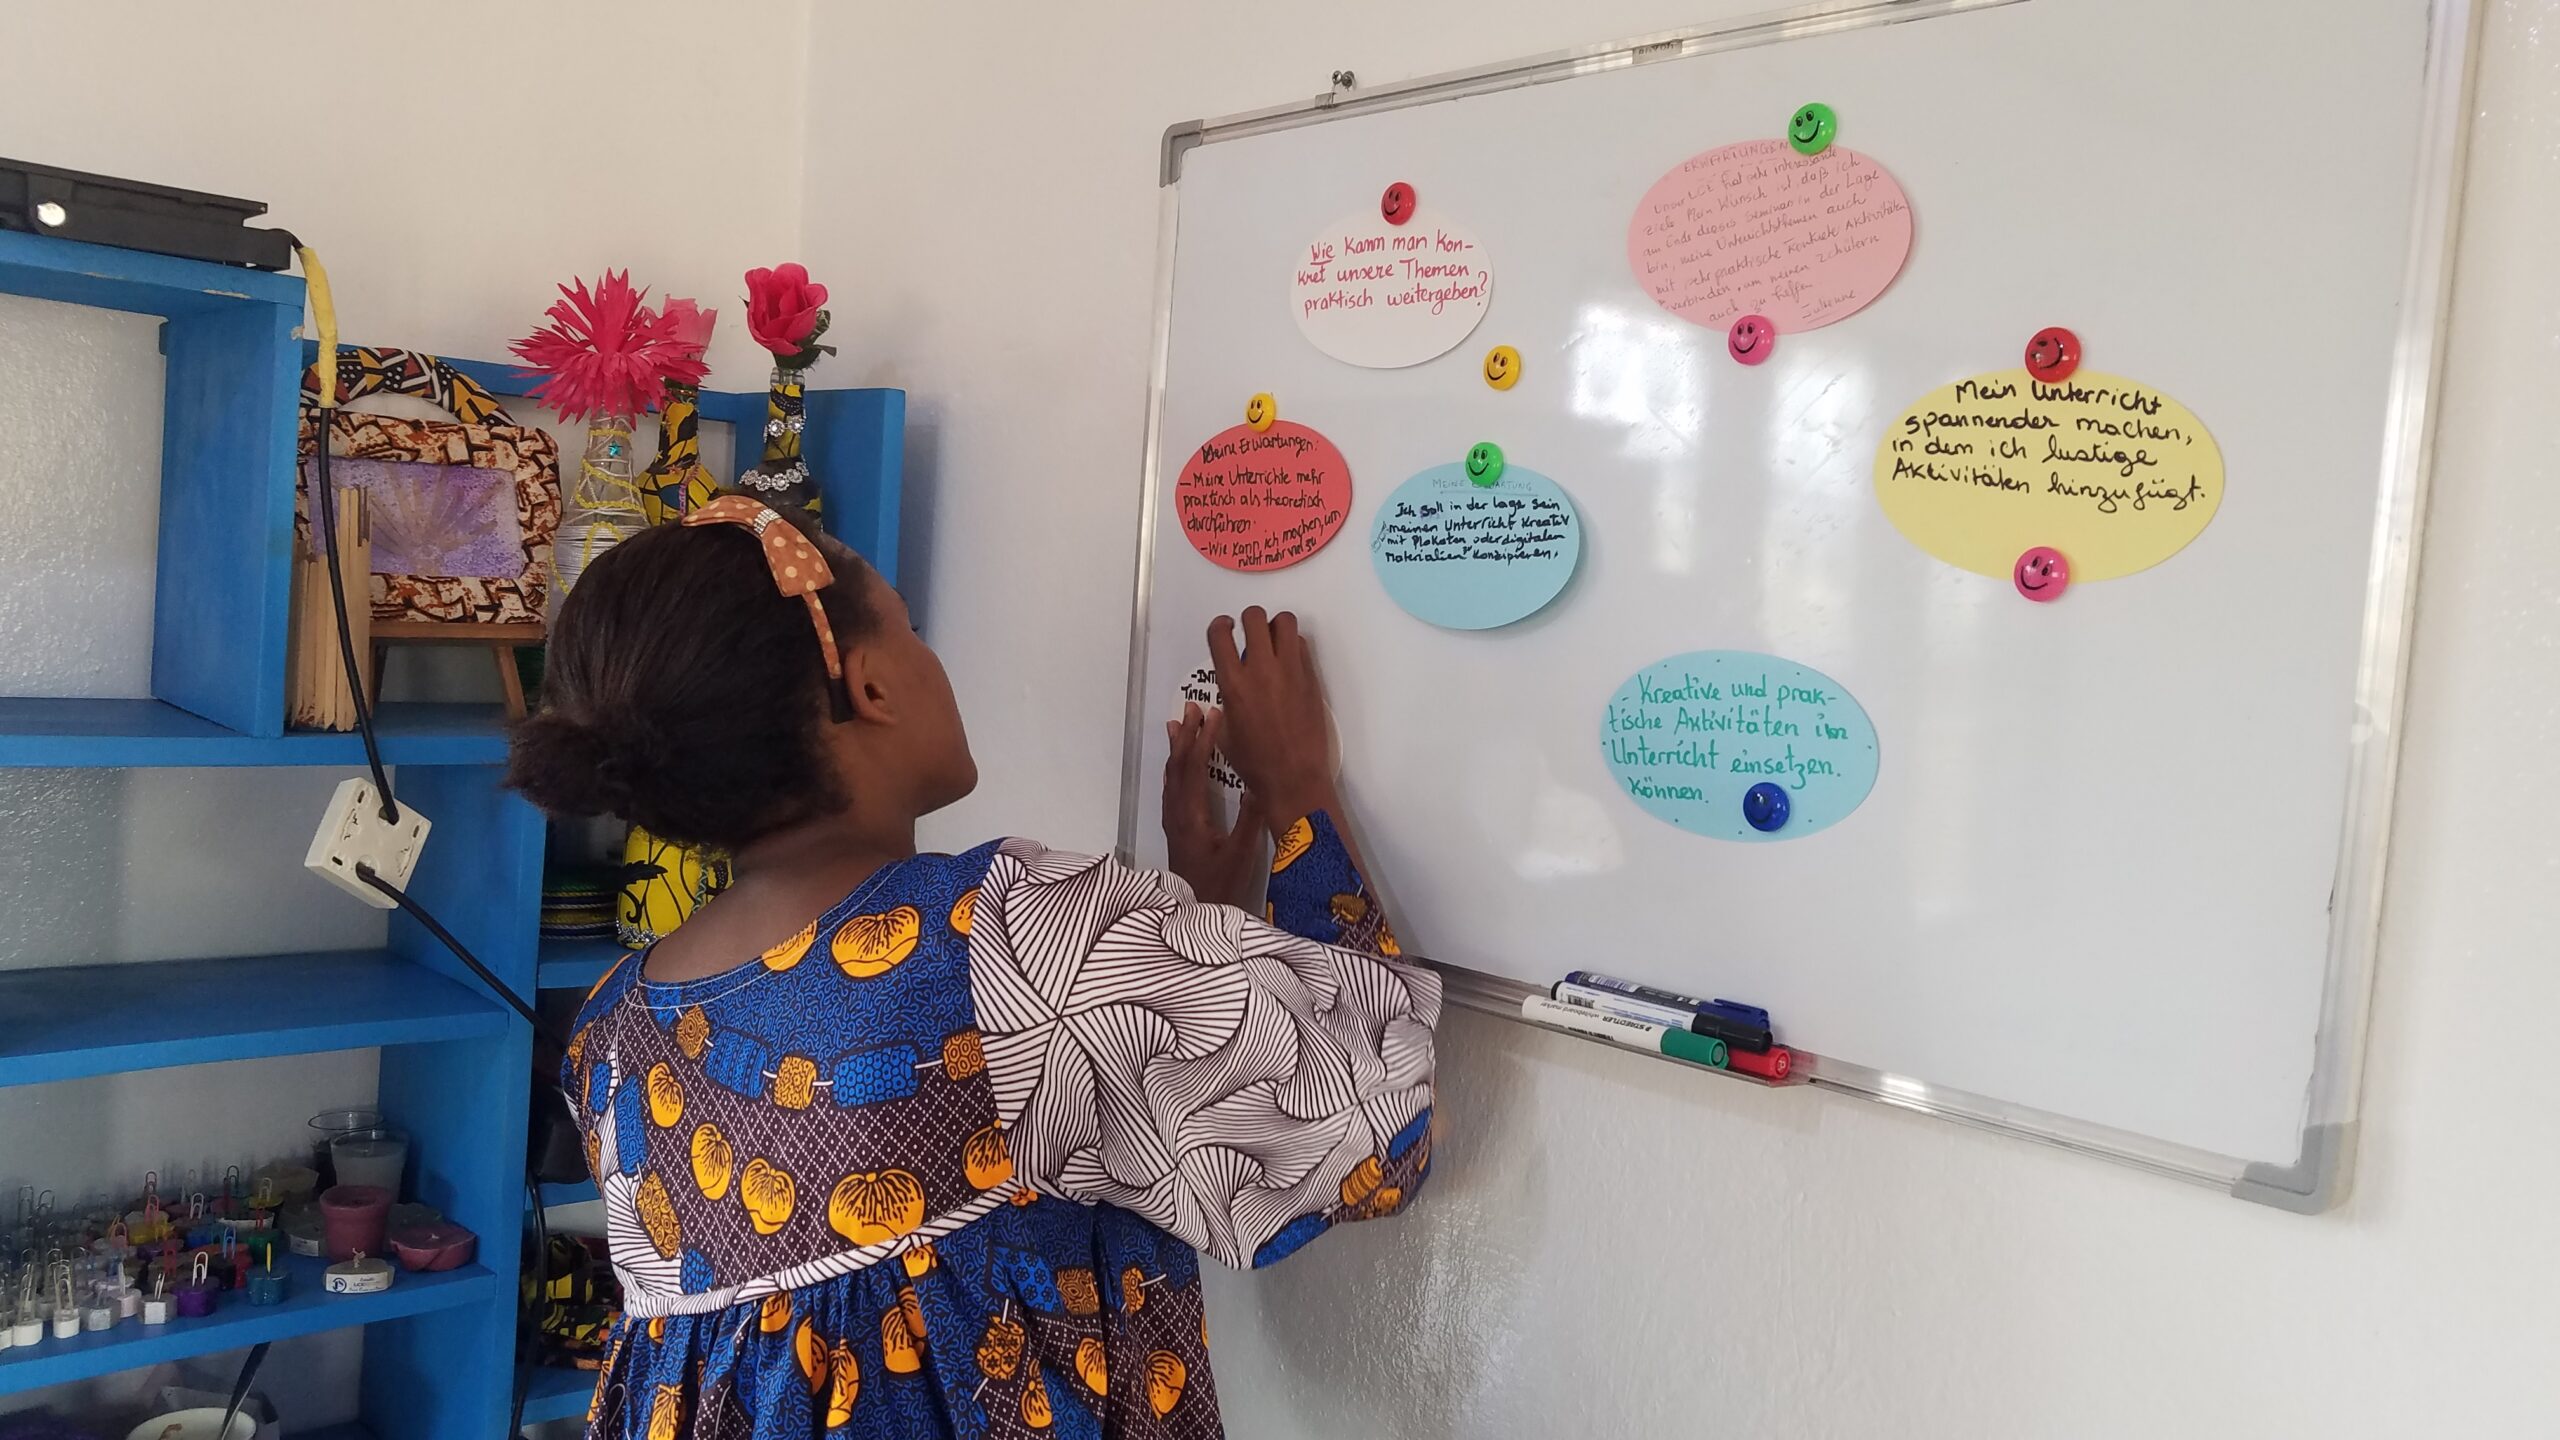 Wie kann man kon-
kret unsere Themen
praktisch weitergeben?
ERWARTUNGEN
Unser LCE hat sehr interessante
Ziele Mein Wunsch ist, daß ich
am Ende dieses Seminars in der Lage
bin, meine Unterrichtsthemen auch
mit sehr praktische konkrete Aktivitäten
verbinden, um meinen Schülern
auch zu helfen
Mein Unterricht
spannender machen,
in dem ich lustige
Aktivitäten hinzufügt.
Meine Erwartungen:
- Meine Unterrichte mehr
praktisch als theoretisch
durchführen.
- Wie kann ich machen, um
nicht mehr viel zu
MEINE ERWARTUNG
Ich soll in der Lage sein
meinen Unterricht kreativ
mit Plakaten oder digitalen
Materialien zu konzipieren.
- Kreative und prak-
tische Aktivitäten im
Unterricht einsetzen.
können.
- INT
TÄTEN E
STAEDTLER whiteboard marker